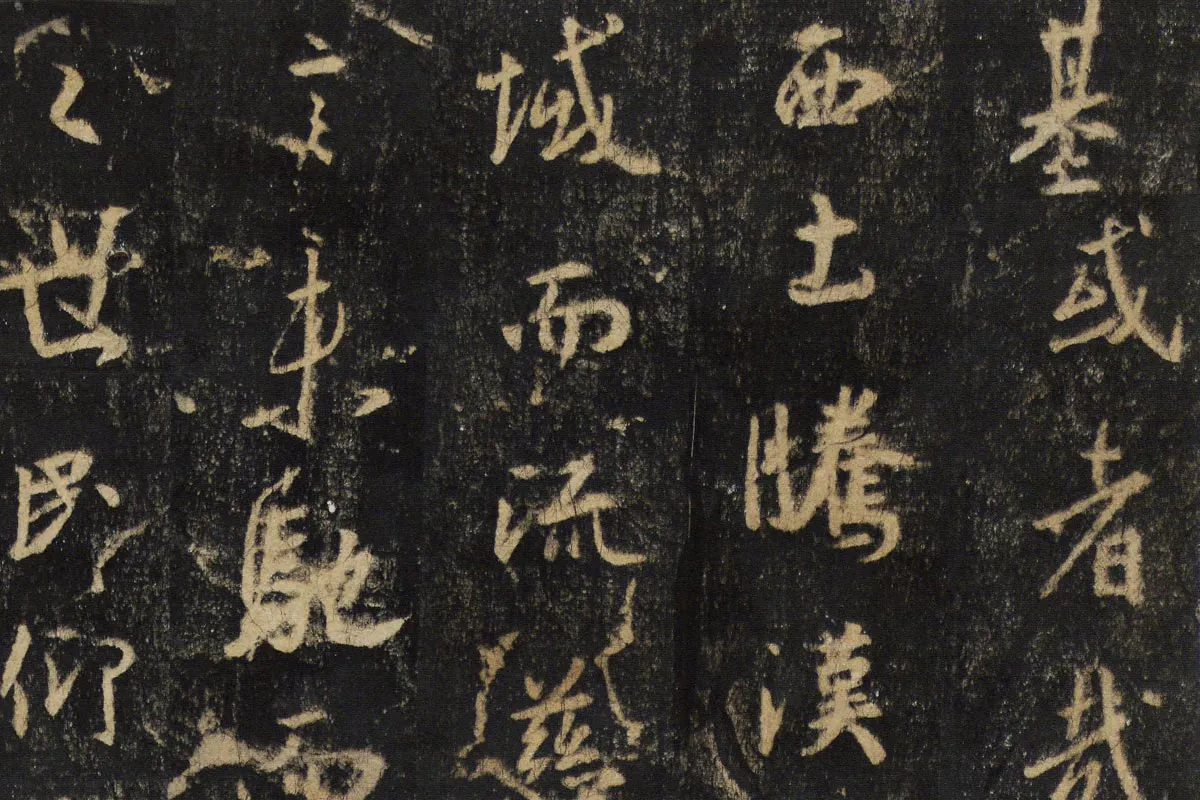 基或者哉
西土騰漢
域而流慈
言未馳而
之世民仰